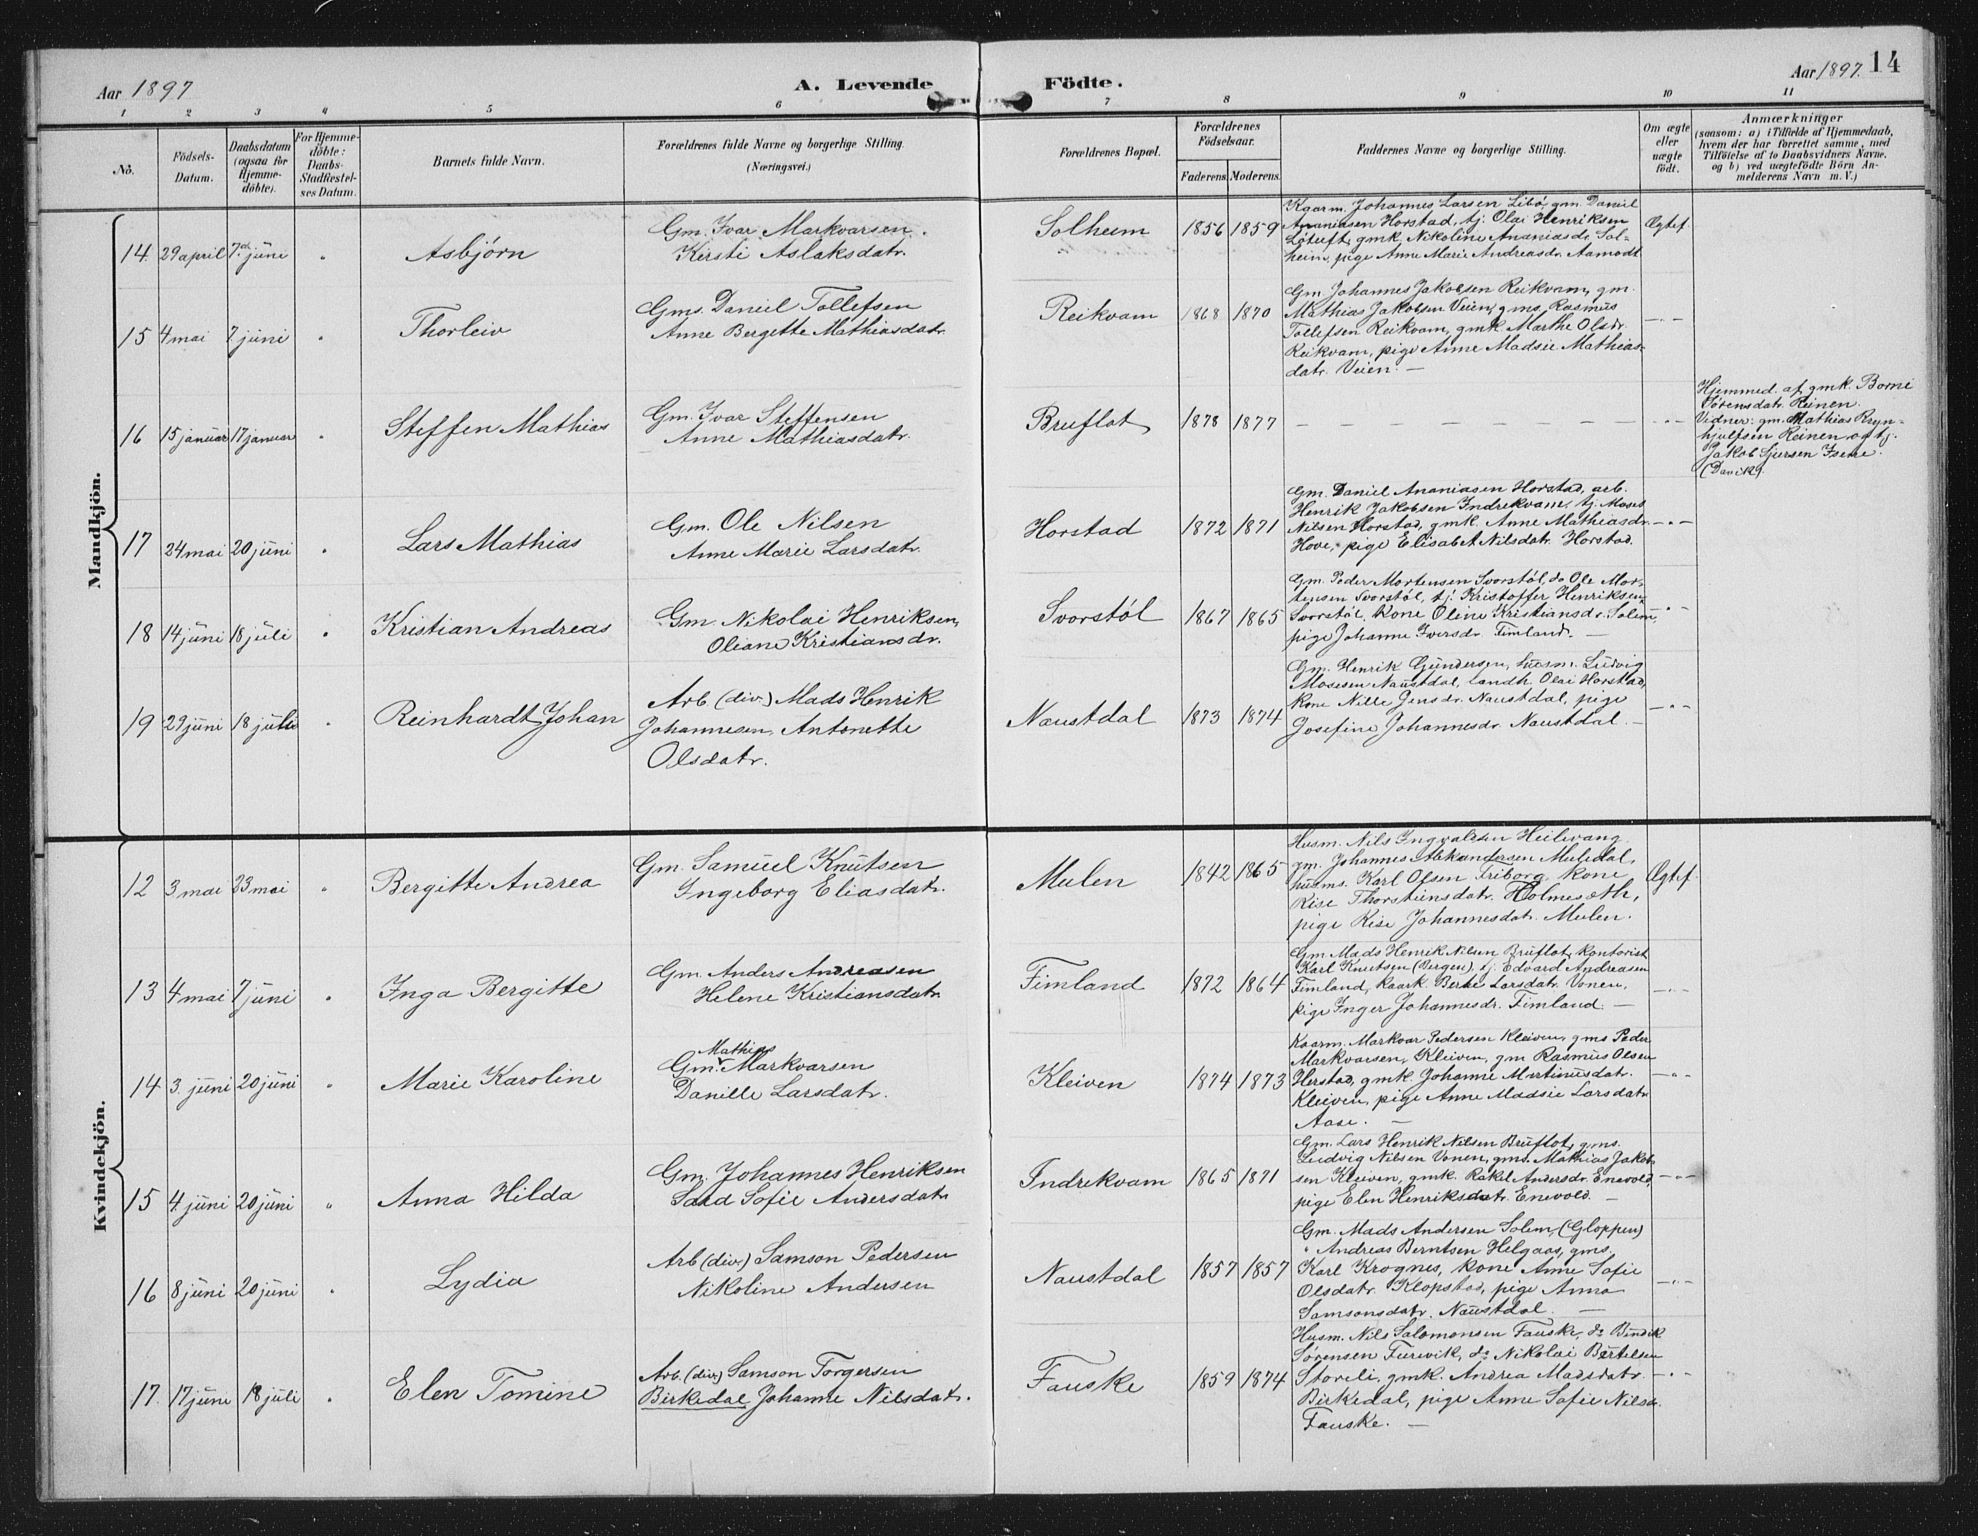 Aar 1897
A. Levende Födte.
Aar 1897. 14
1 2 3 4 5 6 7 8 9 10 11
No.
Födsels-
Datum.
Daabsdatum
(ogsaa for
Hjemme-
döbte).
For Hjemme-
döbte:
Daabs-
Stadfæstel-
ses Datum.
Barnets fulde Navn.
Forældrenes fulde Navne og borgerlige Stilling.
(Næringsvei.)
Forældrenes Bopæl.
Forældrenes
Födselsaar.
Faderens. Moderens.
Faddernes Navne og borgerlige Stilling.
Om ægte
eller
uægte
födt.
Anmærkninger
(saasom: a) i Tilfælde af Hjemmedaab,
hvem der har forrettet samme, med
Tilföielse af to Daabsvidners Navne,
og b) ved uægtefödte Börn An-
melderens Navn m. V.)
Mandkjön.
14. 29 april 7de juni " Asbjörn
Gm. Ivar Markvarsen.
Kersti Aslaksdatr.
Solheim 1856 1859
Kaarm. Johannes Larsen Libö, gm. Daniel
Ananiasen Horstad, tj. Olai Henriksen
Lötuft, gmk. Nikoline Ananiasdr. Sol-
heim, pige Anne Marie Andreasdr. Aamodt.
Ægtef.
15 4 mai 7 juni " Thorleiv
Gms. Daniel Tollefsen
Anne Bergitte Mathiasdatr.
Reikvam 1868 1870
Gm. Johannes Jakobsen Reikvam, gm.
Mathias Jakobsen Veien, gms. Rasmus
Tollefsen Reikvam, gmk. Marthe Olsdr.
Reikvam, pige Anne Madsie Mathias-
datr. Veien. —
—"—
16 15 januar 17 januar " Steffen Mathias
Gm. Ivar Steffensen
Anne Mathiasdatr.
Bruflot 1878 1877 — — — — — — — —"—
Hjemmed. af gmk. Borni
Sörensdatr. Reinen.
Vidner: gm. Mathias Bryn-
hjulfsen Reinen og tj.
Jakob Sjursen Isene.
(Daviken)
17 24 mai 20 juni " Lars Mathias
Gm. Ole Nilsen
Anne Marie Larsdatr.
Horstad 1872 1871
Gm. Daniel Ananiasen Horstad, arb.
Henrik Jakobsen Indrekvam, tj. Moses
Nilsen Horstad, gmk. Anne Mathiasdr.
Hove, pige Elisabet Nilsdatr. Horstad.
—"—
18 14 juni 18 juli " Kristian Andreas
Gm. Nikolai Henriksen,
Oliane Kristiansdr.
Svorstöl 1867 1865
Gm. Peder Mortensen Svorstöl, do Ole Mor-
tensen Svorstöl, tj. Kristoffer Henriksen
Svorstöl, kone Oline Kristiansdr. Solem,
pige Johanne Iversdr. Fimland. —
"—
19 29 juni 18 juli " Reinhardt Johan
Arb. (div.) Mads Henrik
Johannesen, Antonette
Olsdatr.
Naustdal 1873 1874
Gm. Henrik Gundersen, husm. Ludvig
Mosesen Naustdal, landh. Olai Horstad,
kone Nille Jensdr. Naustdal, pige
Josefine Johannesdr. Naustdal. —
—"—
Kvindekjön.
12 3 mai 23 mai " Bergitte Andrea
Gm. Samuel Knutsen
Ingeborg Eliasdatr.
Mulen 1842 1865
Husm. Nils Ingvaldsen Heilevang,
gm. Johannes Aleksandersen Muledal,
husms. Karl Olsen Friborg, kone
Kise Thorsteinsdatr. Holmeseth,
pige Kise Johannesdatr. Mulen.
Ægtef.
13 4 mai 7 juni " Inga Bergitte
Gm. Anders Andreasen
Helene Kristiansdatr.
Fimland 1872 1864
Gm. Mads Henrik Nilsen Bruflot, kontorist
Karl Knutsen (Bergen), tj. Edvard Andreasen
Fimland, kaark. Berte Larsdatr. Vonen,
pige Inger Johannesdr. Fimland. —
—"—
14 3. juni 20 juni " Marie Karoline
Mathias
Gm. Markvarsen
Danille Larsdatr.
Kleiven 1874 1873
Kaarm. Markvar Pedersen Kleiven, gms Peder
Markvarsen, Kleiven, gm Rasmus Olsen
Herstad, gmk. Johanne Martinusdatr.
Kleiven, pige Anne Madsie Larsdatr.
Aase. —
—"—
15 4 juni 20 juni " Anna Hilda
Gm. Johannes Henriksen
Sand Sofie Andersdatr.
Indrekvam 1865 1871
Gm. Lars Henrik Nilsen Bruflot, gms.
Ludvig Nilsen Vonen, gms. Mathias Jakob-
sen Kleiven, gmk. Rakel Andersdr. Enevold,
pige Elen Henriksdatr. Enevold. —
—"—
16 8 juni 20 juni " Lydia
Arb (div.) Samson Pedersen
Nikoline Andersen
Naustdal 1857 1857
Gm. Mads Andersen Solem, (Gloppen)
" Andreas Berntsen Helgaas, gms.
Karl Krognes, kone Anne Sofie
Olsdatr. Klopstad, pige Anna
Samsonsdatr. Naustdal. —
—"—
17. 17 juni 18 juli " Elen Tomine
Arb. (div.) Samson Torgersen
Birkedal Johanne Nilsdatr.
Fauske 1859 1874
Husm. Nils Salomonsen Fauske, do Bendik
Sörensen Furevik, do Nikolai Bertelsen
Storeli, gmk. Andrea Madsdatr.
Birkedal, pige Anne Sofie Nilsdr.
Fauske. —
—"—